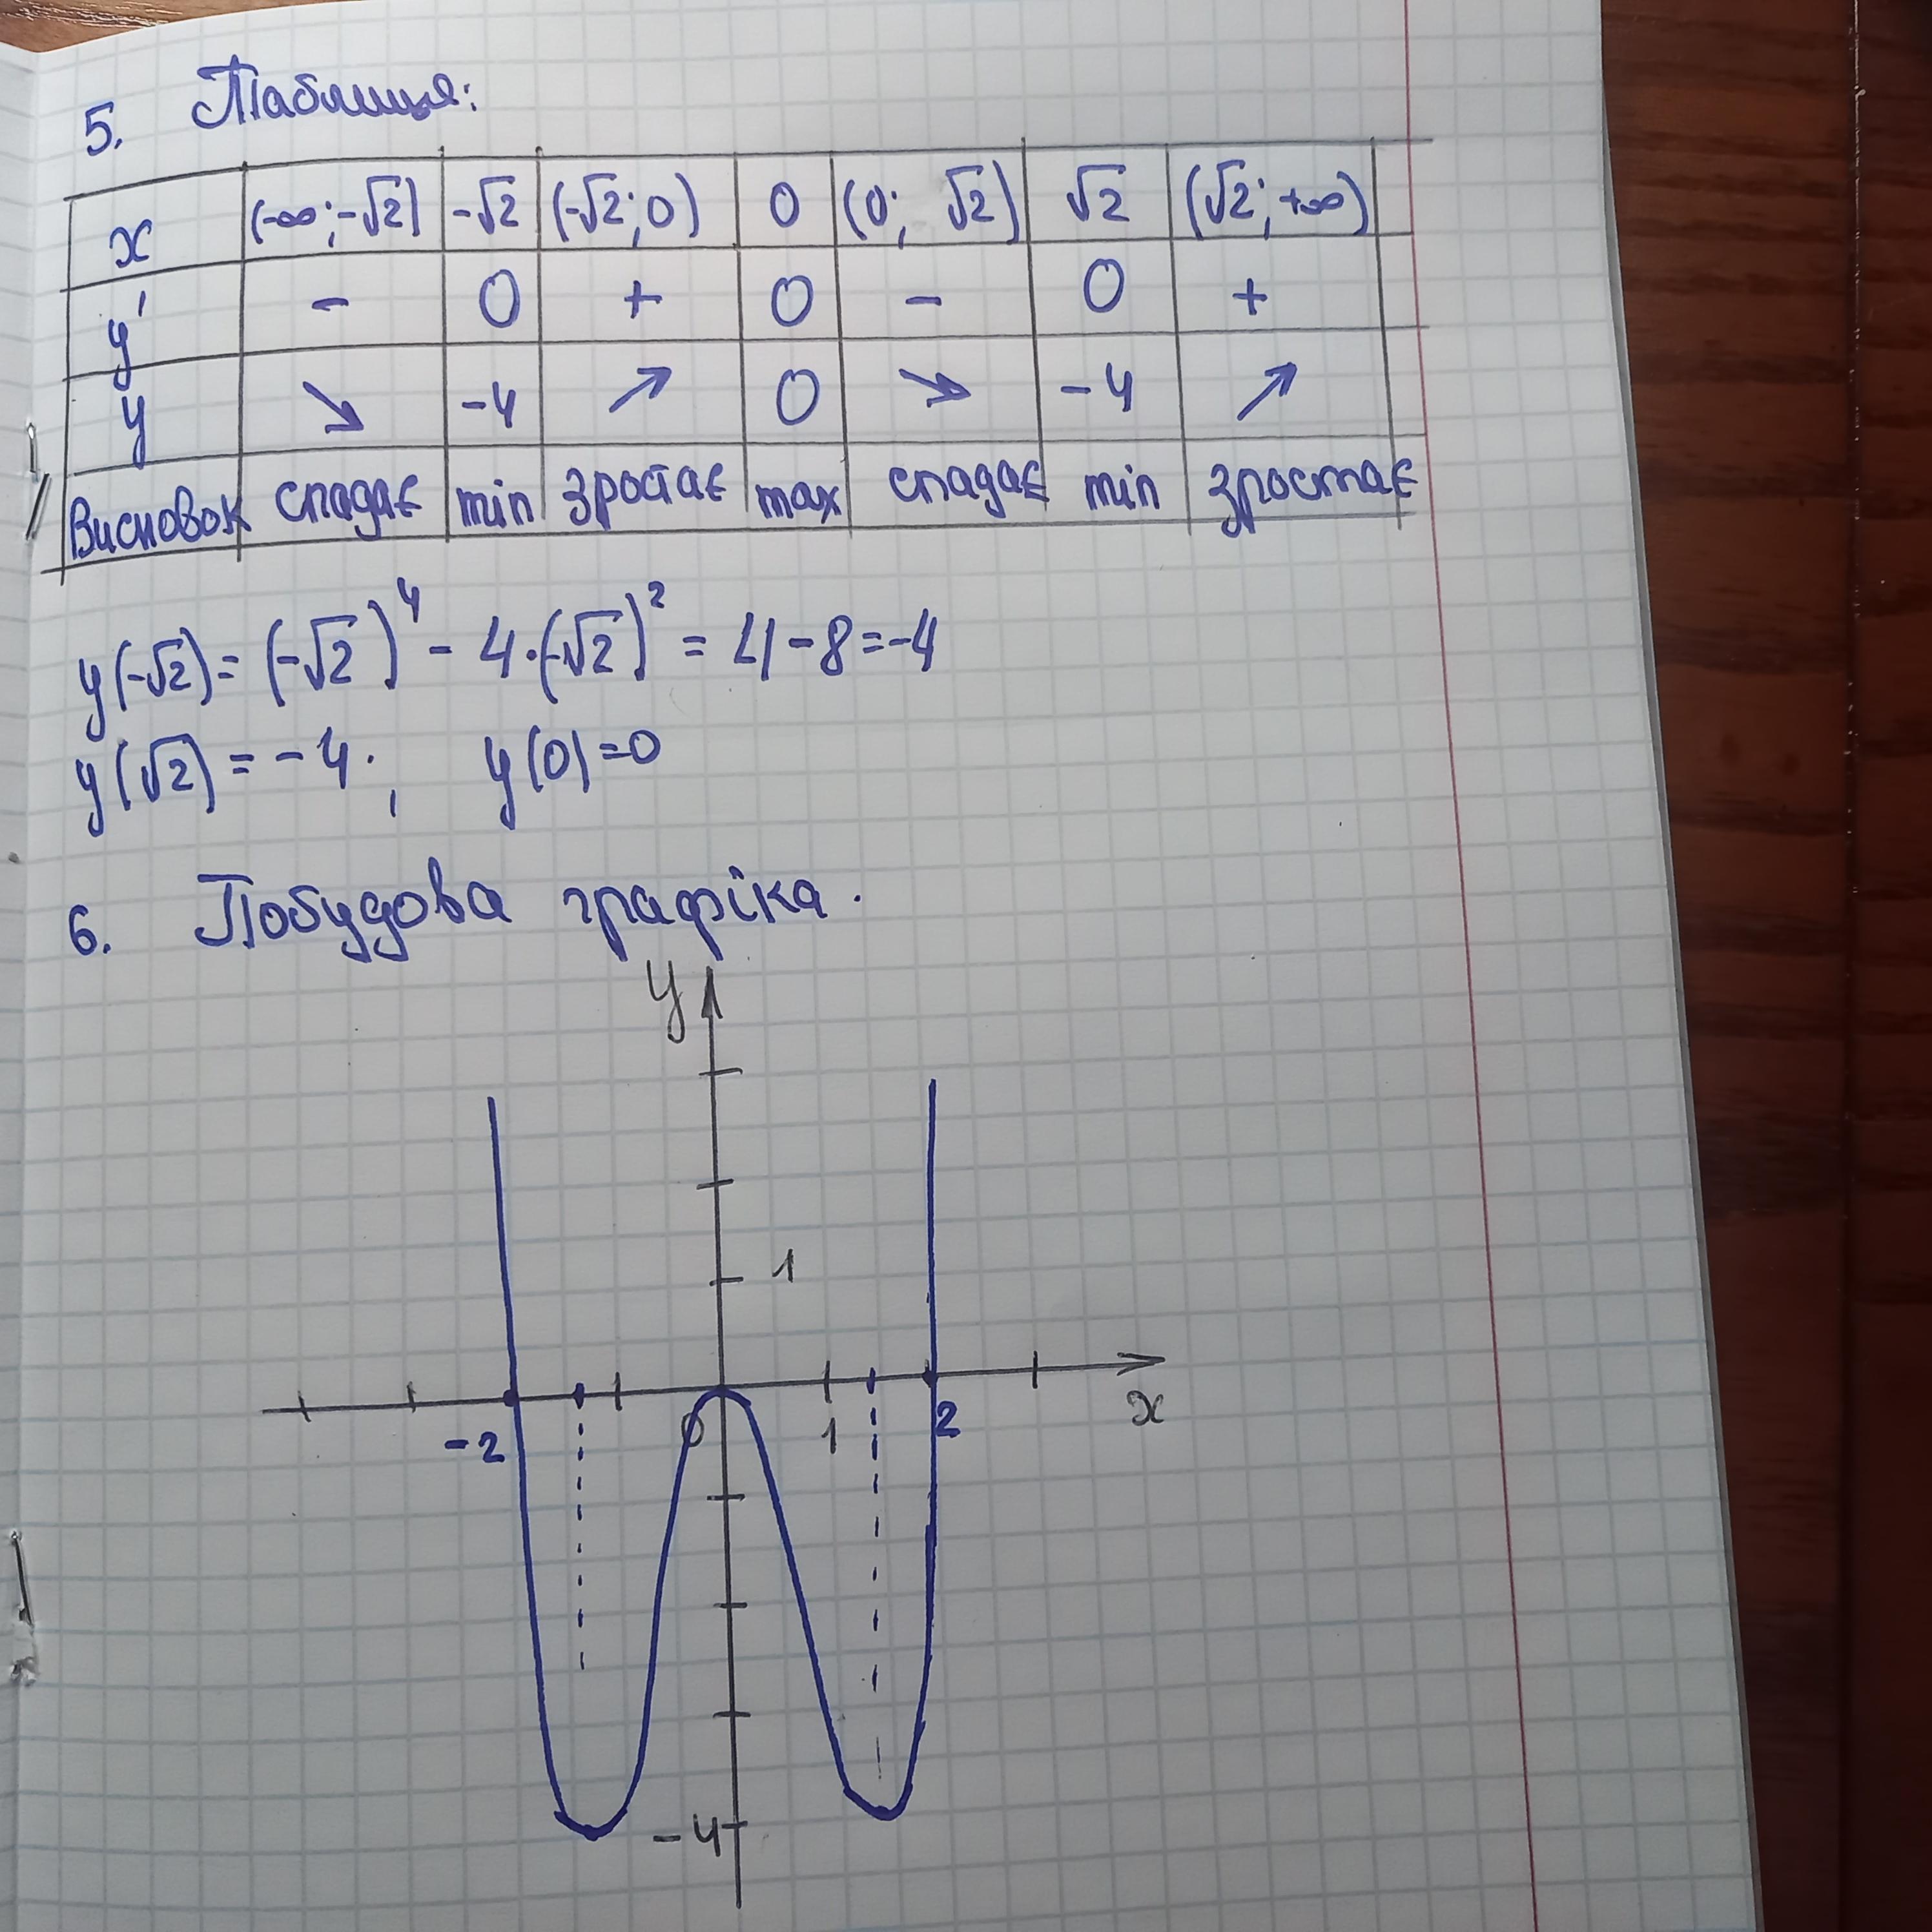 5. Таблиця:
x (-∞;-√2) -√2 (-√2;0) 0 (0; √2) √2 (√2;+∞)
y' - 0 + 0 - 0 +
y ↘ -4 ↗ 0 ↘ -4 ↗
Висновок спадає min зростає max спадає min зростає
y(-√2) = (-√2)⁴ - 4·(-√2)² = 4-8=-4
y(√2) = -4; y(0)=0
6. Побудова графіка.
y
1
x
-2 0 1 2
-4